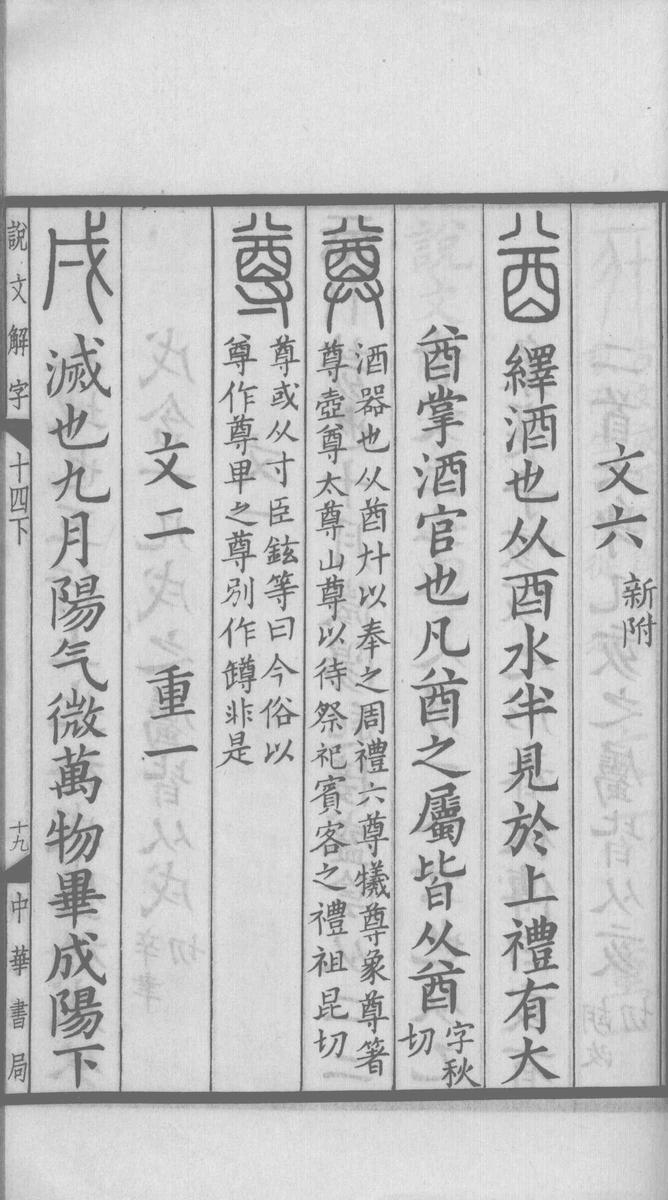 文六新附
酋繹酒也从酉水半見於上禮有大
酋掌酒官也凡酋之屬皆从酋字秋切
尊酒器也从酋廾以奉之周禮六尊犧尊象尊著
尊壺尊太尊山尊以待祭祀賓客之禮祖昆切
尊尊或从寸臣鉉等曰今俗以
尊作尊卑之尊別作罇非是
文二　重一
戌滅也九月陽气微萬物畢成陽下
說文解字　十四下　十九　中華書局